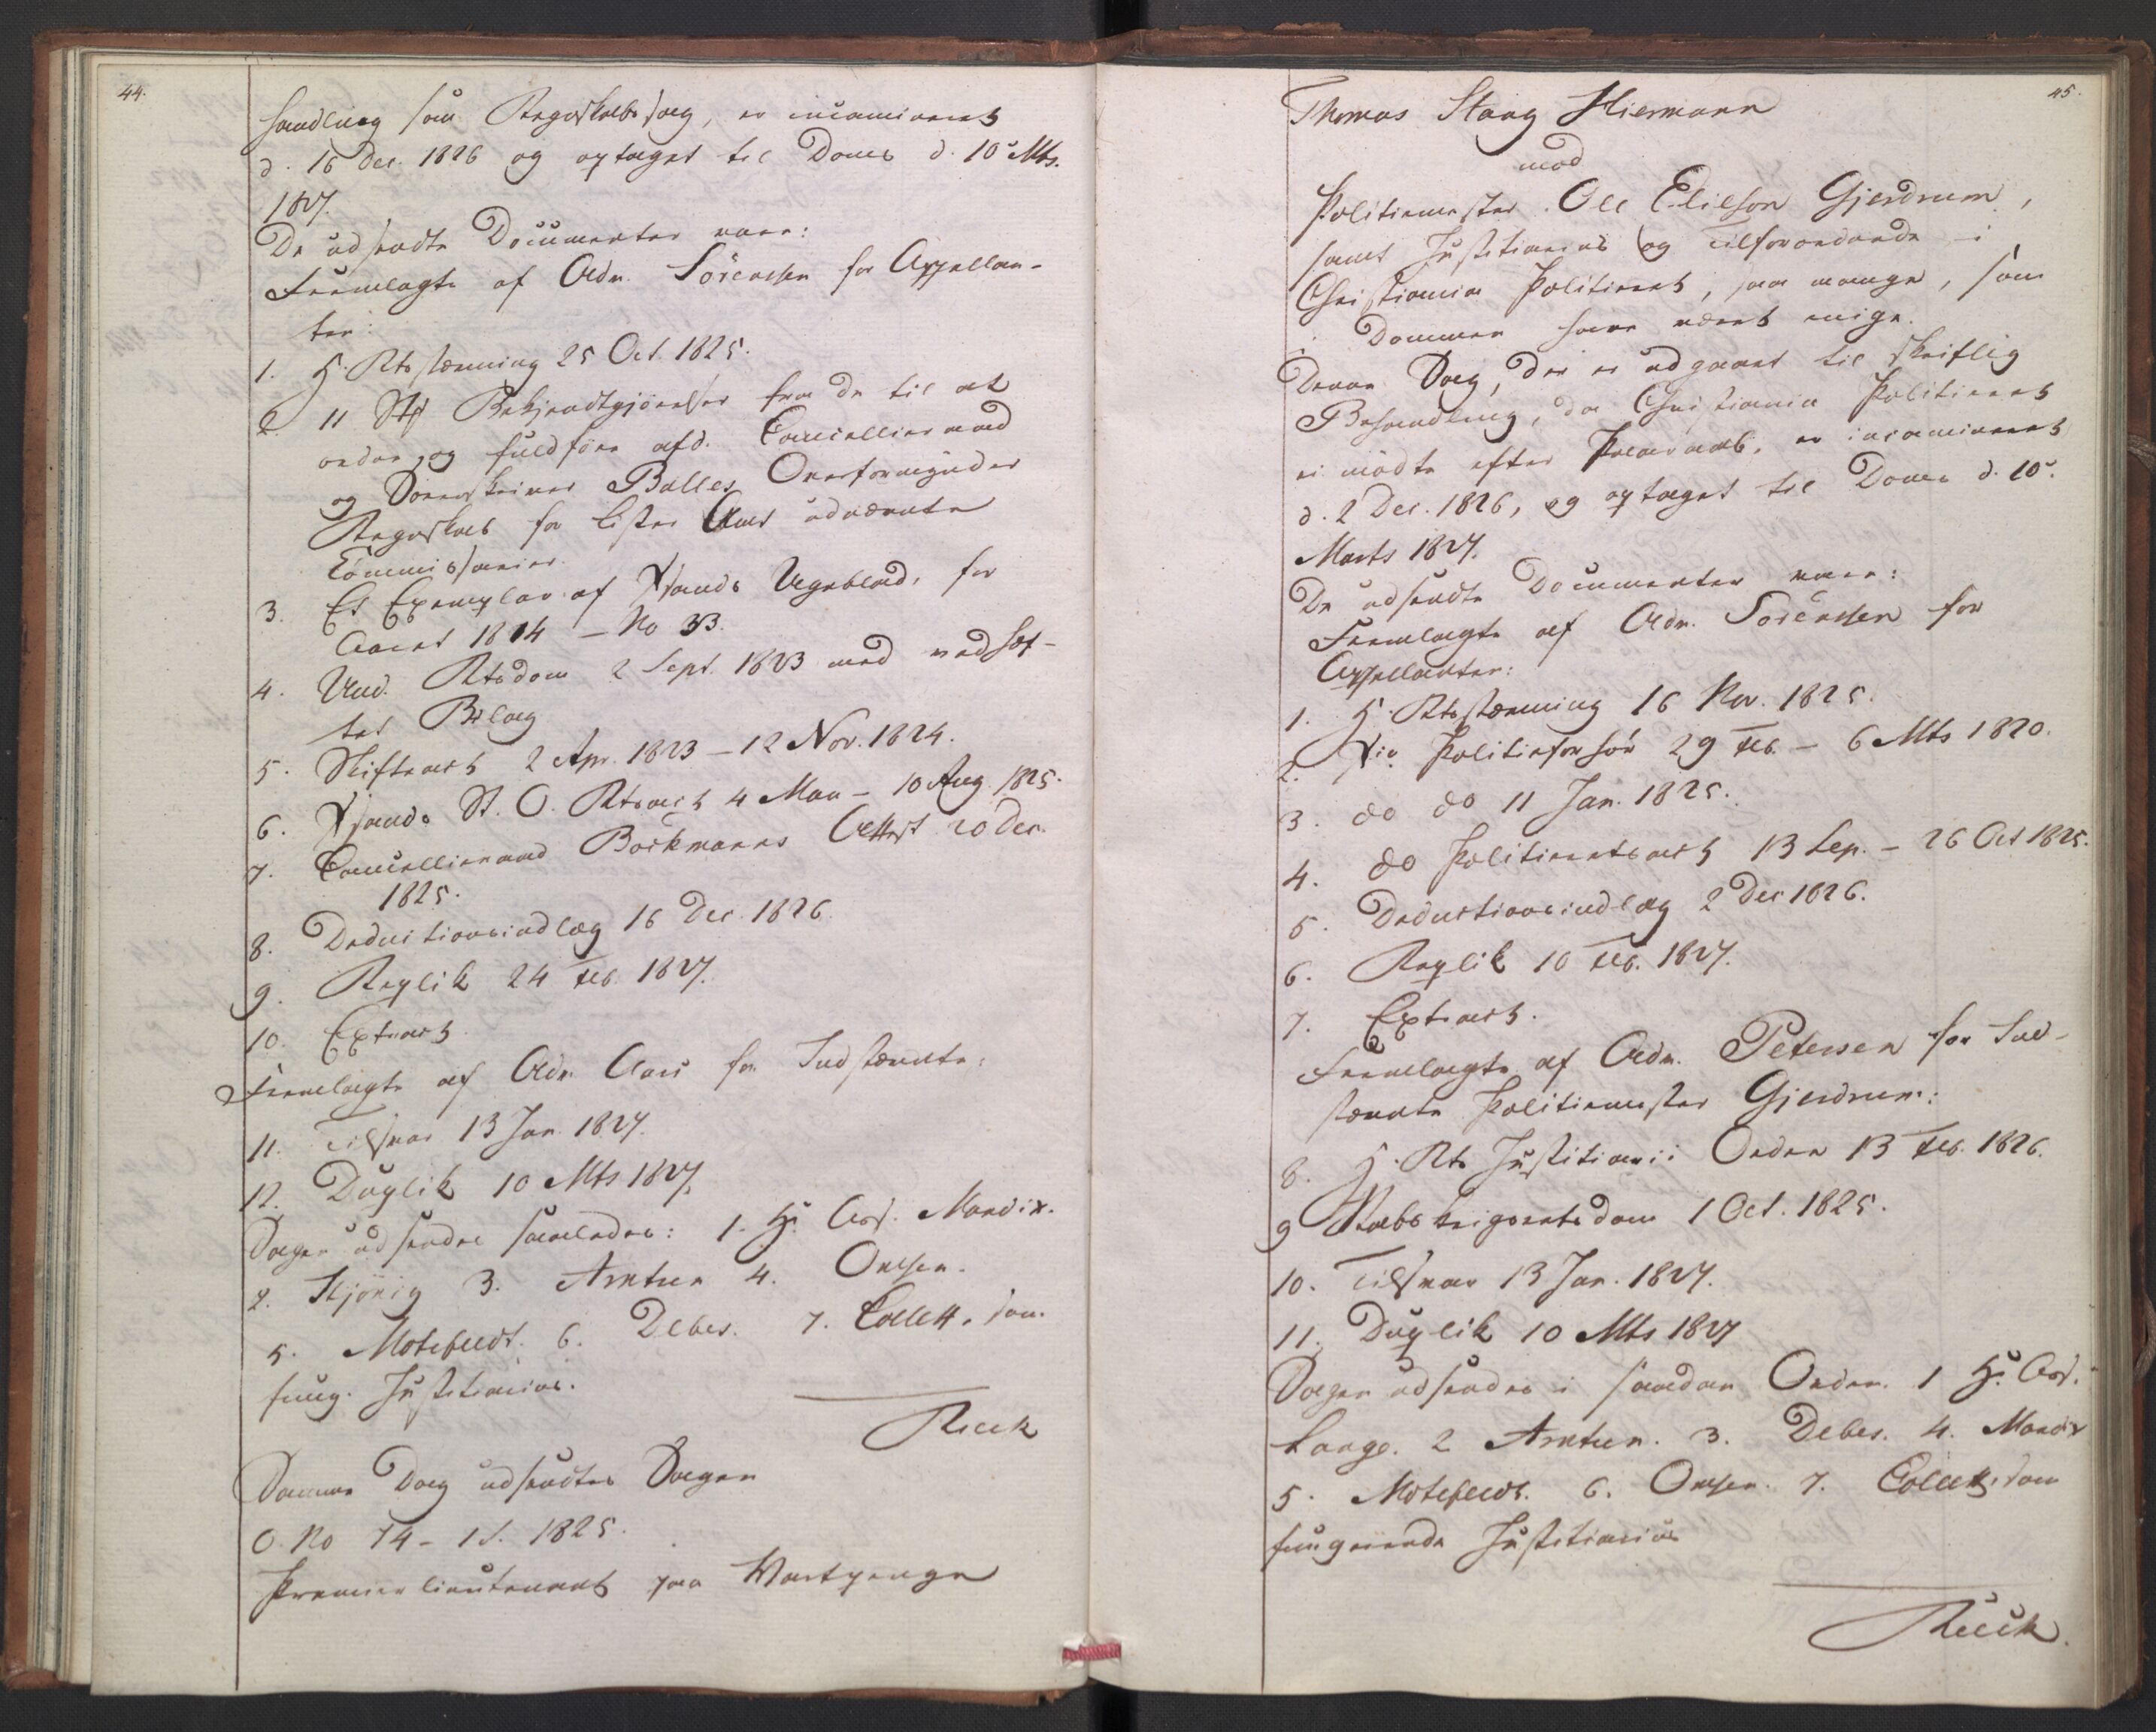 44.
handling som Regnskabssag, er incamineret
d. 16 Dec. 1826 og optaget til Doms d. 10de Mts.
1827.
De udsendte Documenter vare:
Fremlagte af Adv. Sörenssen for Appellan-
ter:
1. H. Rts stævning 25 Oct. 1825.
2. 11 Stk Bekjendtgjörelser fra de til at
ordne og fuldföre afd. Cancellieraad
og Sorenskriver Balles Overformynder
Regnskab for Lister Amt udnævnte
Commissarier.
3. Et Exemplar af Xsands Ugeblad, for
Aaret 1814 – No 33.
4. Und. Rtsdom 2 Sept. 1823 med vedhef-
tet Bilag
5. Skifteact 2 Apr. 1823 – 12 Nov. 1824.
6. Xsands St. O. Rtsact 4 Mai – 10 Aug 1825.
7. Cancellieraad Böckmanns Attest 20 Dec.
1825.
8. Deductionsindlæg 16 Dec. 1826.
9. Replik 24 Feb. 1827.
10. Extract
Fremlagte af Adv. Aars for Indstævnte:
11. Tilsvar 13 Jan. 1827.
12. Duplik 10 Mts 1827.
Sagen udsendes saaledes: 1. Hr. Ass. Mandix.
2. Hjönig 3. Arntzen 4. Omsen.
5. Motzfeldt. 6. Debes. 7. Collett, som
fung. Justitiarius.
Rieck
Samme Dag udsendtes Sagen
O. No 14 – 1 S. 1825.
Premierlieutenant paa Vartpenge
45.
Thomas Stang Hiermann
mod
Politiemester Ole Elieson Gjerdrum,
samt Justitiarius og Tilforordnede i
Christiania Politieret, saa mange, som
i Dommen have været enige.
Denne Sag, der er udgaaet til skriftlig
Behandling, da Christiania Politieret
ei mödte efter Paaraab, er incamineret
d. 2 Dec. 1826, og optaget til Doms d. 10de
Marts 1827.
De udsendte Documenter vare:
Fremlagte af Adv. Sörenssen for
Appellanten:
1. H. Rtsstævning 16 Nov. 1825.
2. Xia Politieforhör 29 Feb. – 6 Mts 1820.
3. do do 11 Jan. 1825.
4. do Politieretsact 13 Sep. – 26 Oct 1825.
5. Deductionsindlæg 2 Dec 1826.
6. Replik 10 Feb. 1827.
7. Extract.
Fremlagte af Adv. Petersen for Ind-
stævnte Politiemester Gjerdrum:
8. H. Rts Justitiarii Orden 13 Feb. 1826.
9 Stabskrigsretsdom 1 Oct. 1825.
10. Tilsvar 13 Jan. 1827.
11. Duplik 10 Mts 1827
Sagen udsendes i saadan Orden. 1 Hr. Ass.
Lange. 2 Arntzen. 3. Debes. 4. Mandix
5. Motzfeldt. 6. Omsen. 7. Collett, som
fungerende Justitiarius
Rieck.